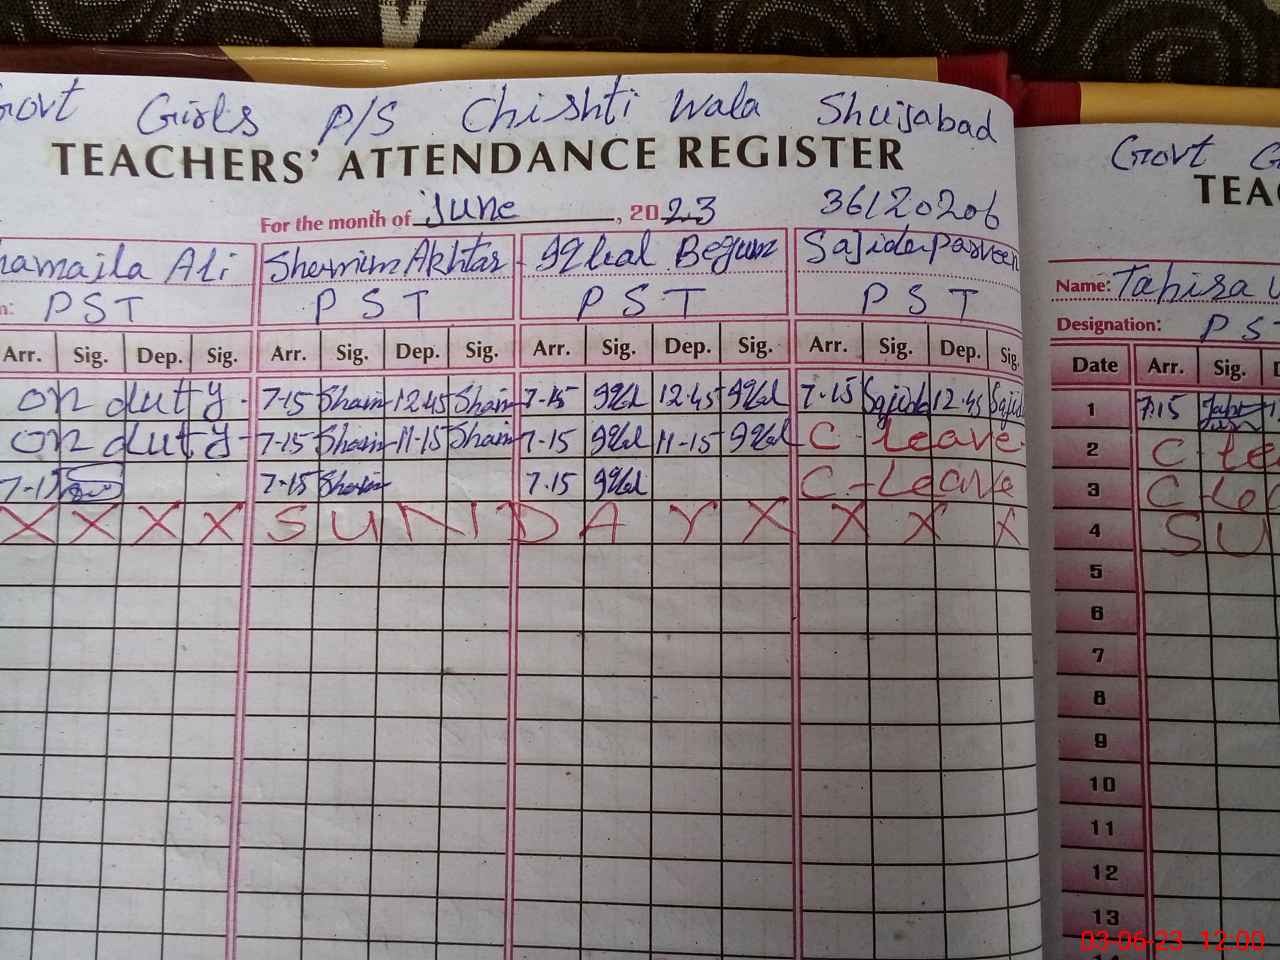 Govt Girls P/S Chishti Wala Shujabad
TEACHERS' ATTENDANCE REGISTER
For the month of June, 2023 36120206
hamaila Ali Shemim Akhtar Iqbal Begum Sajida Parveen
n: PST PST PST PST
Arr. Sig. Dep. Sig. Arr. Sig. Dep. Sig. Arr. Sig. Dep. Sig. Arr. Sig. Dep. Sig.
on duty. 7-15 Sham 12.45 Sham 7-15 Iqbal 12.45 Iqbal 7.15 Sajida 12.45 Sajida
on duty- 7-15 Sham 11-15 Sham 7-15 Iqbal 11-15 Iqbal C-Leave
7-1 7-15 7.15 Iqbal C-Leave
X X X X S U N D A Y X X X X
Govt G
TEAC
Name: Tahira
Designation: PST
Date Arr. Sig. D
1 7.15
2 C-Le
3 C-Le
4 SU
5
6
7
8
9
10
11
12
13
14
03-06-23 12:00